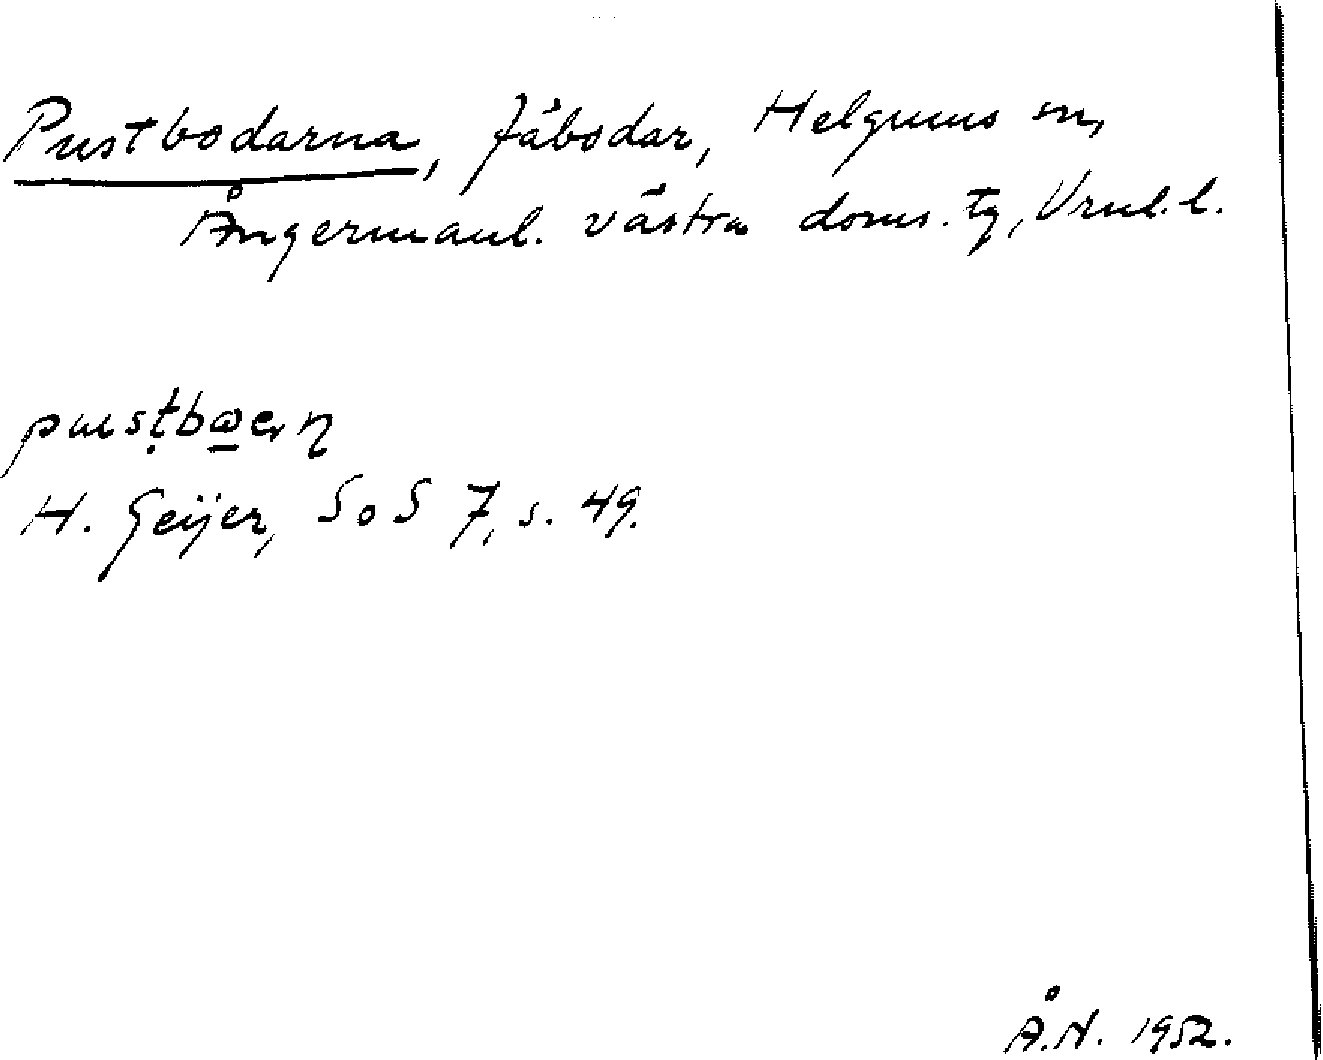 Pustbodarna, fäbodar, Helgums sn,
Ångermanl. västra doms. tg, Vrnl. l.
H. Geijer, SoS 7, s. 49.
Å.N. 1952.